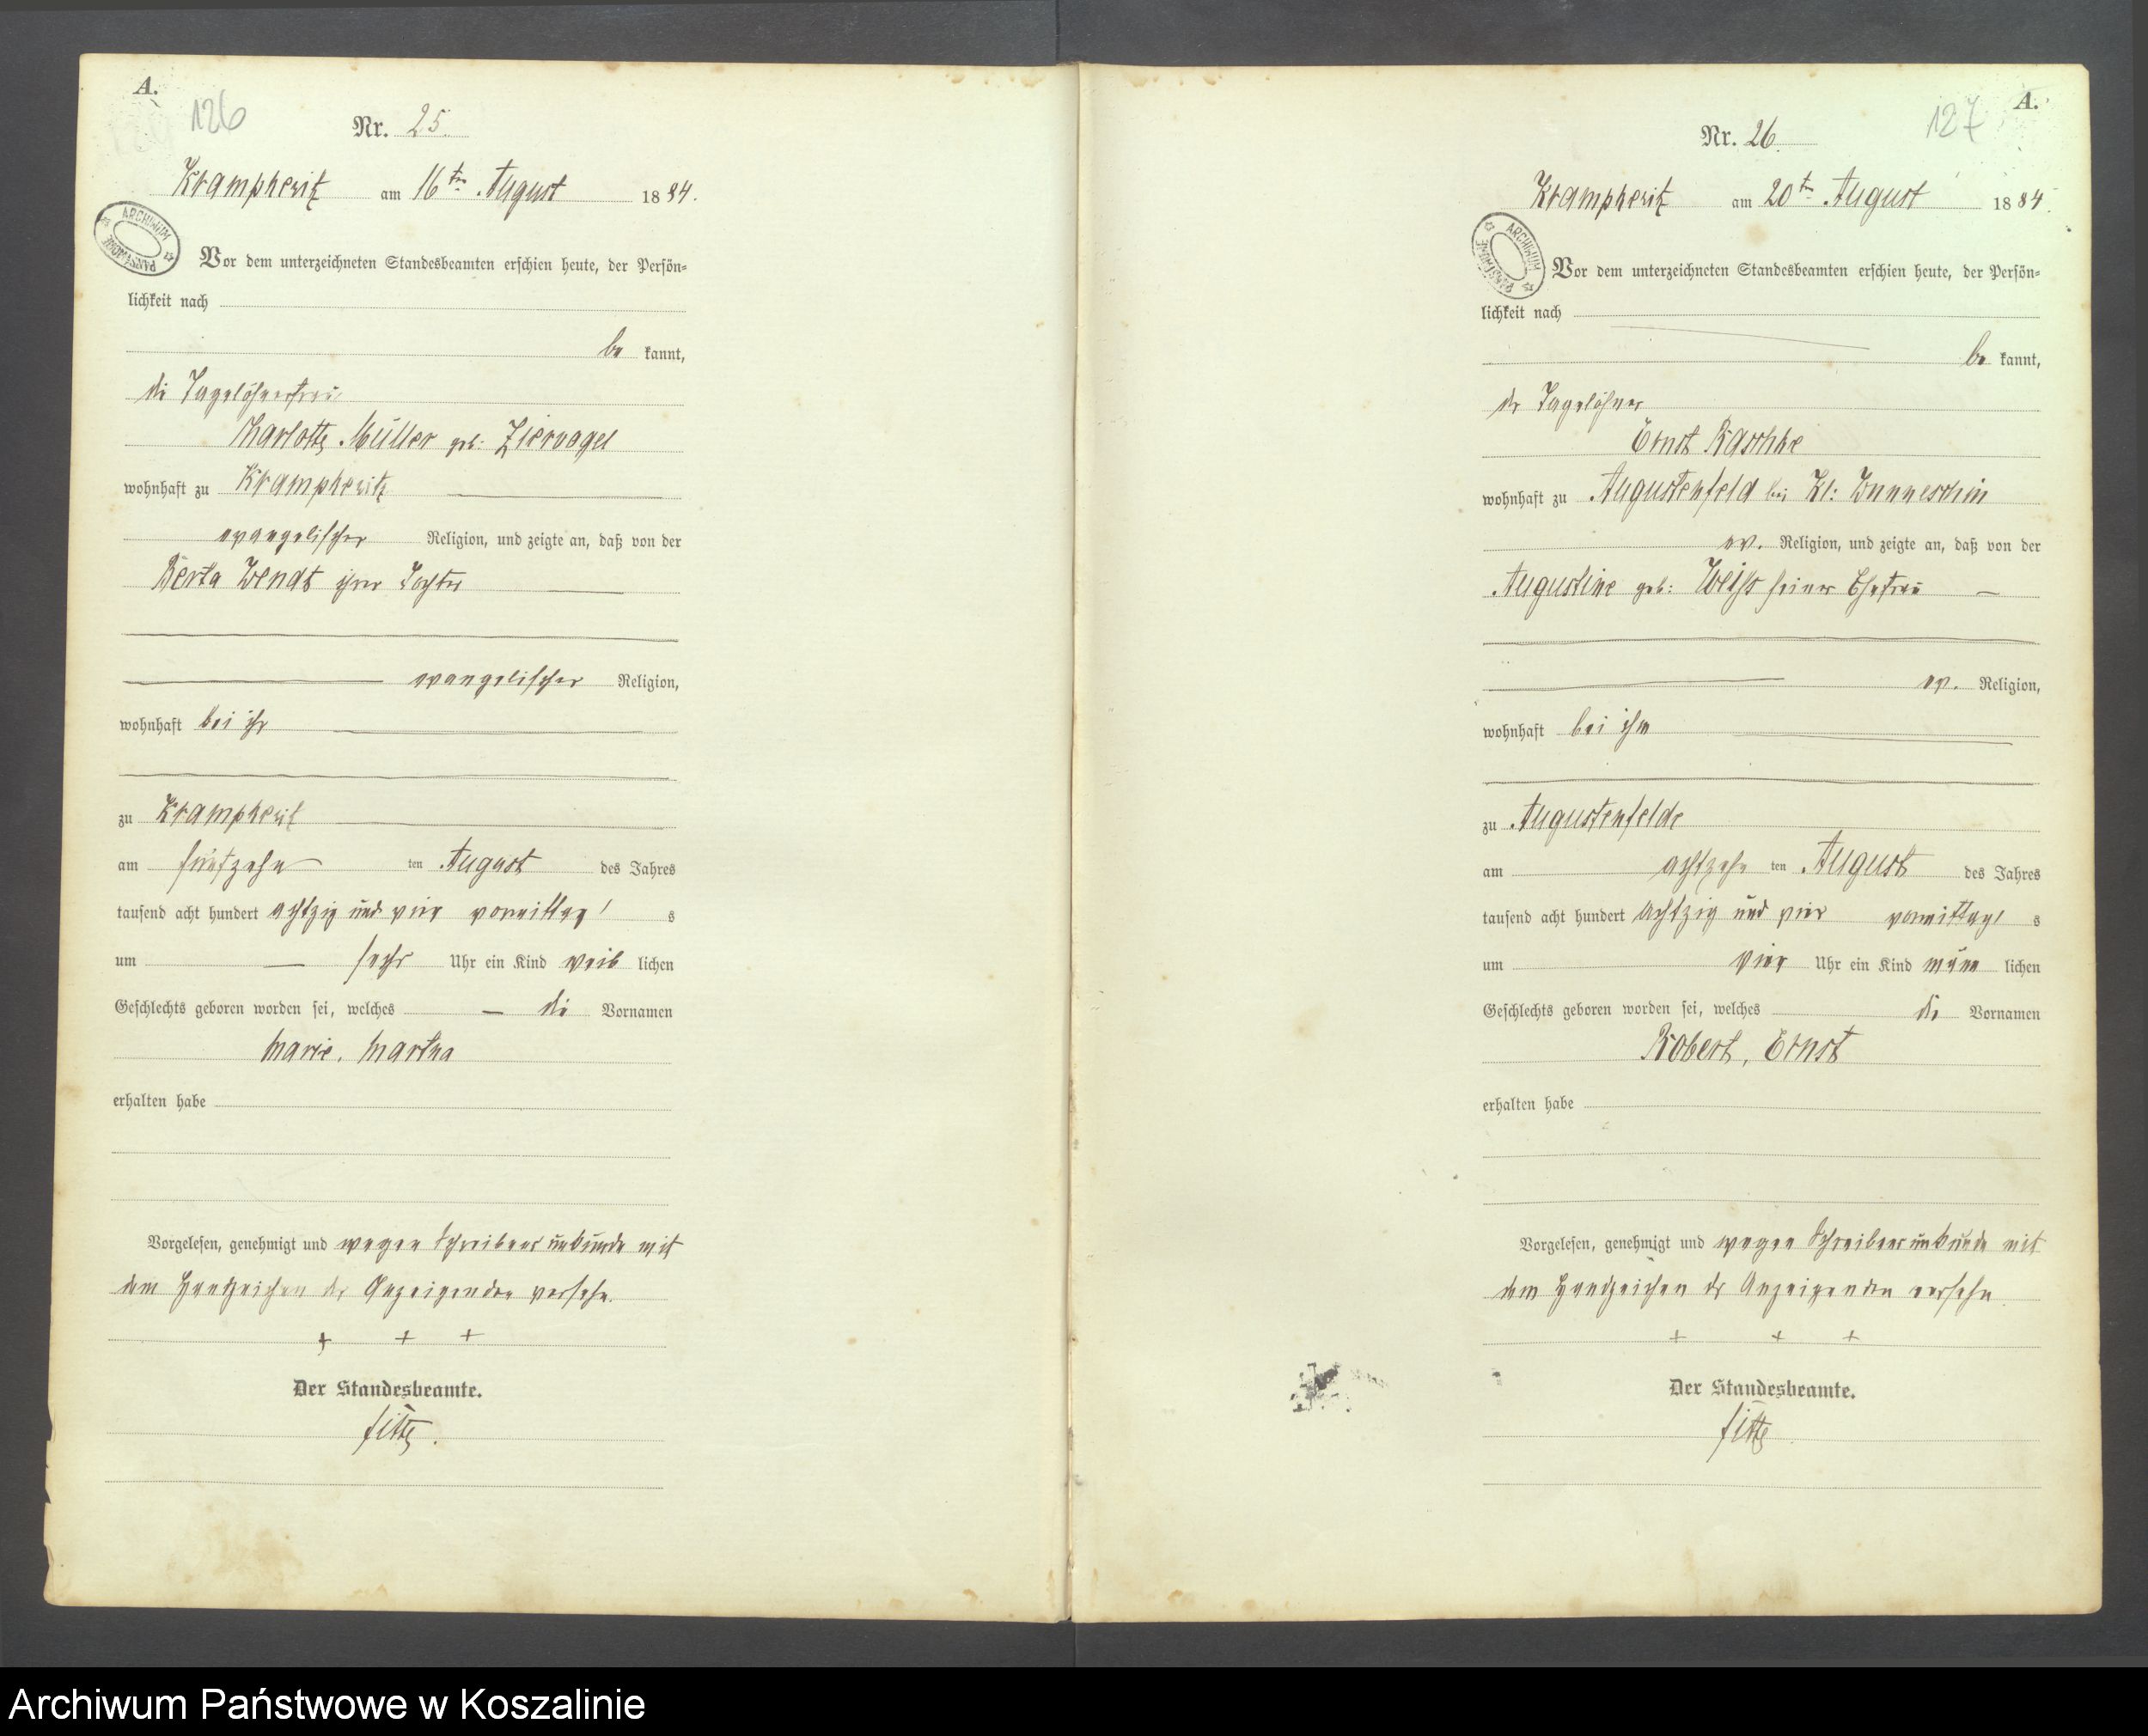 A.
126
Nr. 25.
Krampkewitz am 16ten August 1884.
ARCHIWUM PAŃSTWOWE
Vor dem unterzeichneten Standesbeamten erschien heute, der Persön-
lichkeit nach
be kannt,
die Tagelöhnerfrau
Charlotte Müller geb: Ziervogel
wohnhaft zu Krampkewitz
evangelischer Religion, und zeigte an, daß von der
Berta Wendt ihrer Tochter
evangelischer Religion,
wohnhaft bei ihr
zu Krampkewitz
am fünfzehn ten August des Jahres
tausend acht hundert achtzig und vier vormittag s
um sechs Uhr ein Kind weib lichen
Geschlechts geboren worden sei, welches die Vornamen
Marie, Martha
erhalten habe
Vorgelesen, genehmigt und wegen Schreibensunkunde mit
dem Handzeichen der Anzeigenden versehn.
+ + +
Der Standesbeamte.
127
A.
Nr. 26.
Krampkewitz am 20ten August 1884.
ARCHIWUM PAŃSTWOWE
Vor dem unterzeichneten Standesbeamten erschien heute, der Persön-
lichkeit nach
be kannt,
der Tagelöhner
Ernst Raschke
wohnhaft zu Augustenfeld bei Kl: Wunneschin
ev. Religion, und zeigte an, daß von der
Augustine geb: Weiß seiner Ehefrau
ev. Religion,
wohnhaft bei ihm
zu Augustenfelde
am achtzehn ten August des Jahres
tausend acht hundert achtzig und vier vormittag s
um vier Uhr ein Kind männ lichen
Geschlechts geboren worden sei, welches die Vornamen
Robert, Ernst
erhalten habe
Vorgelesen, genehmigt und wegen Schreibensunkunde mit
dem Handzeichen des Anzeigenden versehn
+ + +
Der Standesbeamte.
Archiwum Państwowe w Koszalinie